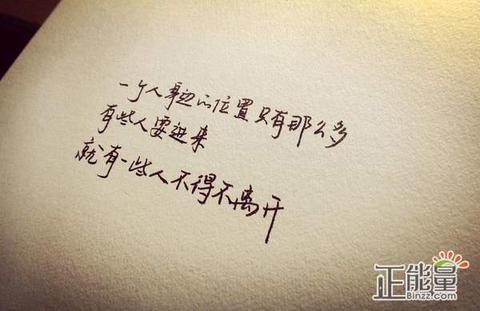 一个人身边的位置只有那么多
有些人要进来
就有一些人不得不离开
正能量
Binzz.com